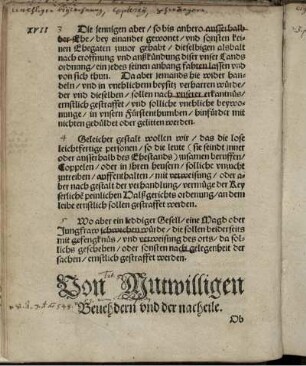 XVII 3 Die jennigen aber / so bis anhero ausserhalb
der Ehe / bey einander gewonet / vnd sonsten keinen
Ehegaten zuuor gehabt / dieselbigen alsbalt
nach eröffnung vnd ankündung diser vnser Lands
ordnung / ein jedes seinen anhang faheren lassen vnd
von sich thun. Da aber jemands hie wider handeln /
vnd in verehlichtem beysitz verharren würde /
der vnd dieselben / sollen nach vnserer erkantnus /
ernstlich gestrafft / vnd solliche vnehliche beywonunge /
in vnsern Fürstenthumben / hinfürder mit
nichten geduldet oder gelitten werden.
4 Geleicher gestalt wollen wir / das die lose
leichtfertige personen / so die leute (sie seindt inner
oder ausserhalb des Ehestands) zusamen beruffen /
Coppelen / oder in ihren heusern / solliche vnzucht
zutreiben / auffenthalten / mit verweisung / oder aber
nach gestalt der verhandlung / vermüge der Keyserliche
peinlichen Halßgerichts ordnung / an dem
leibe ernstlich sollen gestraffet werden.
5 Wo aber ein lediger Gesell / eine Magd oder
Jungfraw schwechen würde / die sollen beiderseits
mit gefengknüs / vnd verweisung des orts / da sollichs
geschehen / oder sonsten nach gelegenheit der
sachen / ernstlich gestraffet werden.
Von Mutwilligen
Beuehdern vnd der nacheile.
Ob